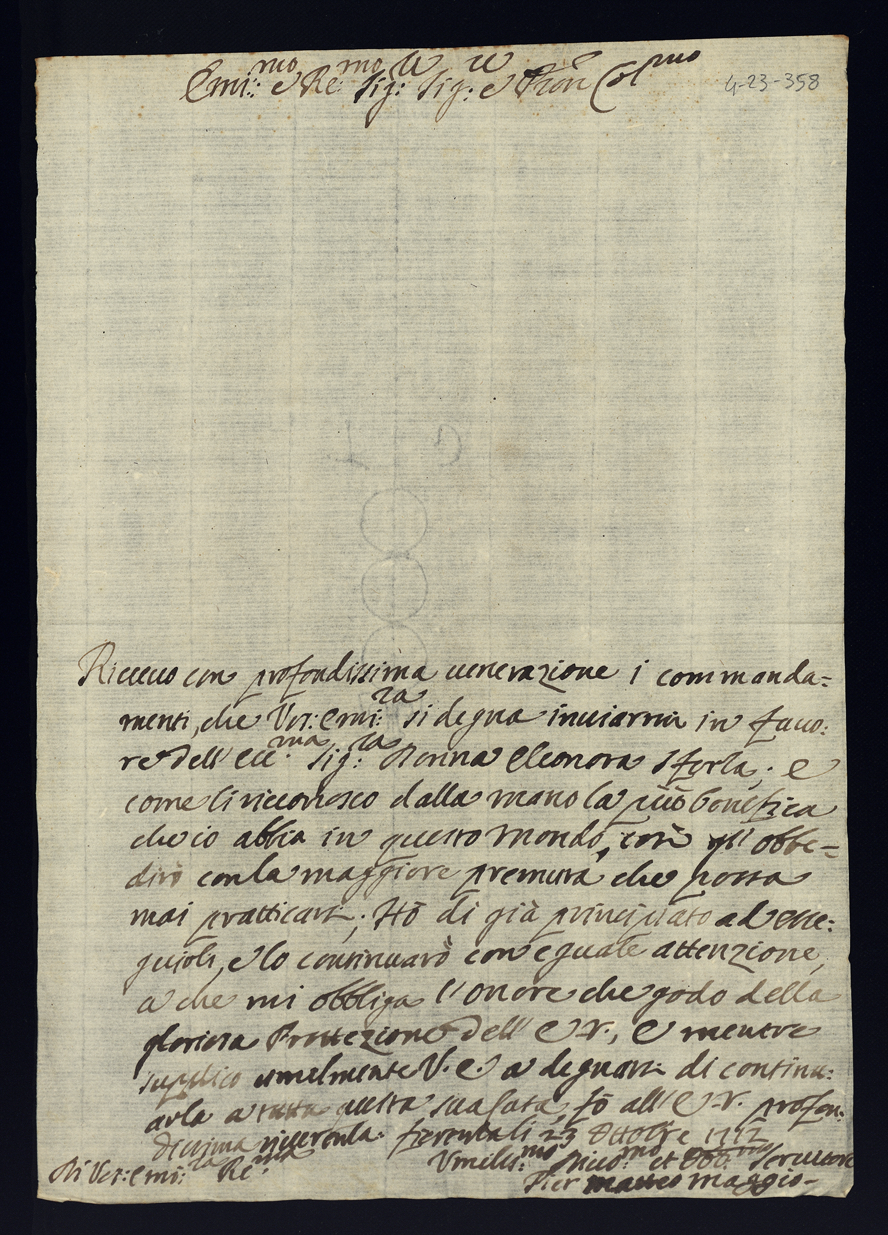 Emi:mo e Re:mo Sig: Sig:re e Pron Col:mo
4-23-358
Riceuo con profondissima uenerazione i commanda=
menti, che Vos: Emi:za si degna inuiarmi in fauo:
re dell' ecc:ma Sig:ra Donna Eleonora Sforza; e
come li riconosco dalla mano la più benefica
che io abbia in questo mondo, così gl' obbe=
dirò con la maggiore premura che possa
mai pratticarsi; Hò di già principiato ad esse:
guirli, e lo continuarò con eguale attenzione,
a che mi obbliga l' onore che godo della
gloriosa Protezione dell' E. V., e mentre
supplico umelmente V. E. a degnarsi di continu:
arla a tutta questa sua fò all' E. V. profon:
dissima riuerenza. li 23 Ottobre 1712
Di Vos: emi:za Re:ma Umiliss:mo et Obb:mo Seruitore
Pier Matteo Maggio